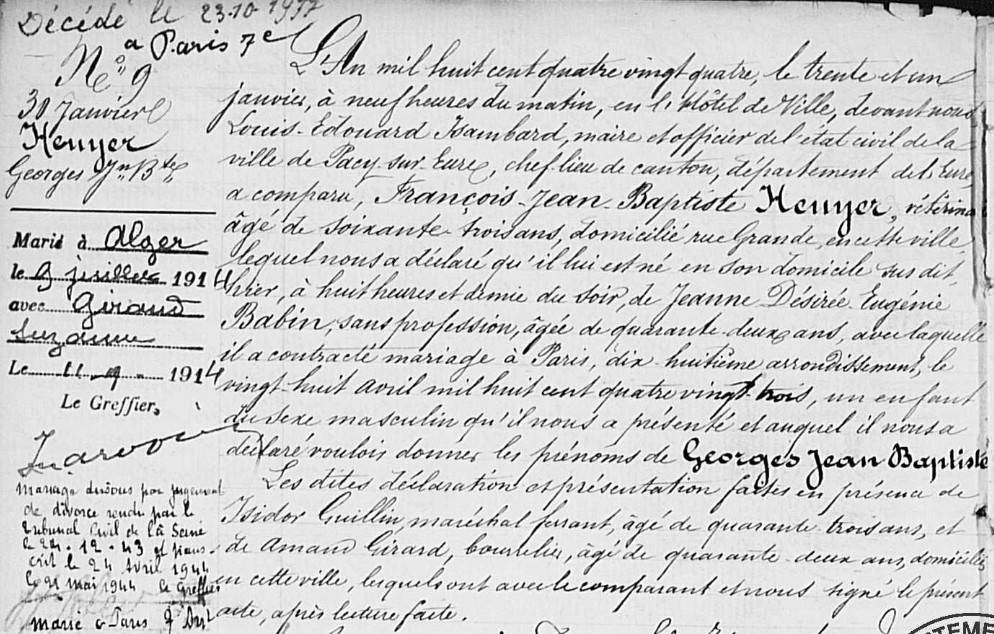 Décédé le 23-10-1977
a Paris 7e
No 9
30 Janvier
Heuyer
Georges Jn Bte
Marié à Alger
le 9 juillet 1914
avec Giraud
Suzanne
Le 11-9- 1914
Le Greffier,
Mariage dissous par jugement
de divorce rendu par le
Tribunal Civil de la Seine
le 22-12-43 et trans-
crit le 24 Avril 1944
le 21 mai 1944 le Greffier
marié à Paris
L'An mil huit cent quatre vingt quatre, le trente et un
janvier, à neuf heures du matin, en l'Hôtel de Ville, devant nous
Louis-Edouard Isambard, maire et officier de l'état civil de la
ville de Pacy-sur-Eure, chef-lieu de canton, département de l'Eure,
a comparu, François-Jean-Baptiste Heuyer, vétérina
âgé de soixante-trois ans, domicilié rue Grande, en cette ville
lequel nous a déclaré qu'il lui est né en son domicile sus dit,
hier, à huit heures et demie du soir, de Jeanne Désirée Eugénie
Babin, sans profession, âgée de quarante-deux ans, avec laquelle
il a contracté mariage à Paris, dix-huitième arrondissement, le
vingt-huit avril mil huit cent quatre vingt-trois, un enfant
du sexe masculin qu'il nous a présenté et auquel il nous a
déclaré vouloir donner les prénoms de Georges Jean Baptiste
Les dites déclaration et présentation faites en présence de
Isidor Guillin, maréchal ferrant, âgé de quarante trois ans, et
de Amand Girard, bourrelier, âgé de quarante-deux ans, domiciliés
en cette ville, lesquels ont avec le comparant et nous signé le présent
acte, après lecture faite.